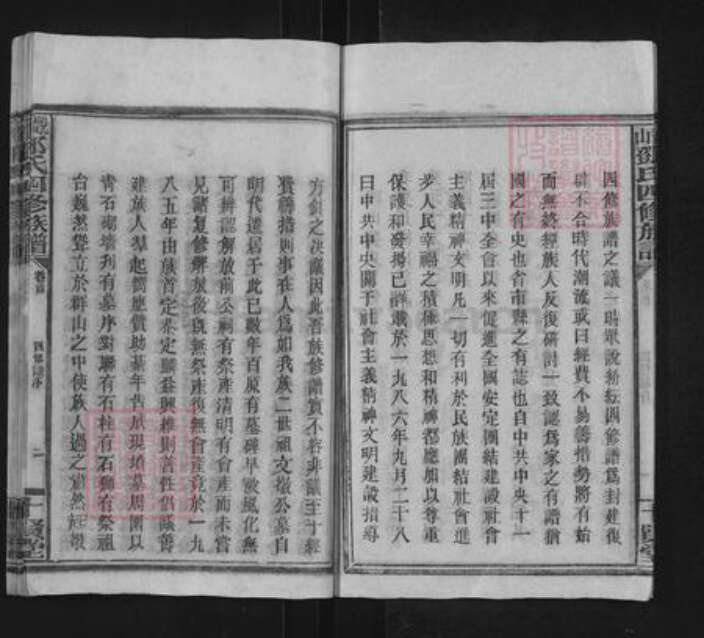 四修族譜之議一時眾說紛紜四修譜爲封建復
辟不合時代潮流或曰經費不易籌措勢將有始
而無終經族人反復研討一致認爲家之有譜猶
國之有史也省市縣之有誌也自中共中央十一
屆三中全會以來促進全國安定團結建設社會
主義精神文明凡一切有利於民族團結社會進
步人民幸福之積極思想和精神都應加以尊重
保護和發揚已詳載於一九八六年九月二十八
曰中共中央關于社會主義精神文明建設指導
方針之決議因此吾族修譜實不容非議至于經
費籌措則事在人爲如我族二世祖文徵公墓自
明代遷居于此已數年百原有墓碑早被風化無
可辨認解放前公祠有祭產清明有會產而未嘗
見諸復修解放後旣無祭產復無會產竟於一九
八五年由族首定泰定麟益興維則善性倡議善
建族人羣起響應贊助墓年告成現墳墓周圍以
青石砌墻刋有墓序對聯有石柱有石獅有祭祖
台巍然聳立於群山之中使族人過之肅然起敬
氏四修族譜
卷首
四修譜序
二